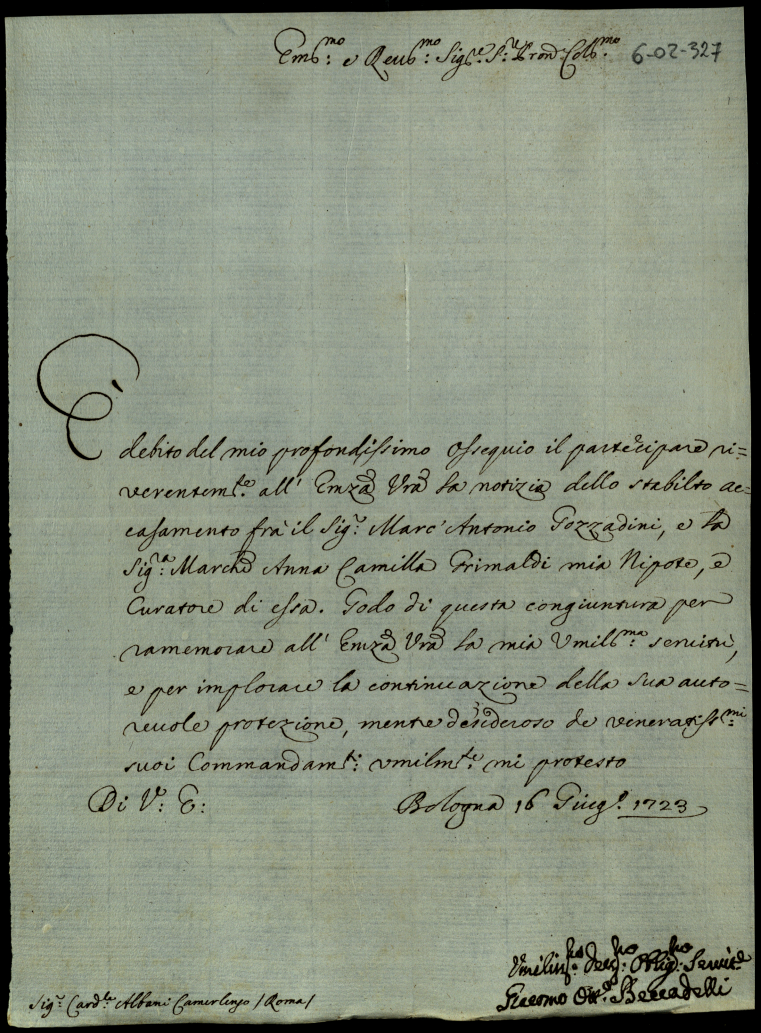 Em̃o: e Reu͂mo: Sig.re S.r Pron Col͂mo: 6-02-327
È
debito del mio profondissimo ossequio il partecipare ri=
verentem.te all' Emza Vra la notizia dello stabilto ac=
casamento frà il Sig.r Marc' Antonio Gozzadini, e la
Sig.ra Marche Anna Camilla Grimaldi mia Nipote, e
Curatore di essa. Godo di questa congiuntura per
ramemorare all' Emza Vra la mia Vmiliss.ma seruitù,
e per implorare la continuazione della sua auto=
reuole protezione, mentre desideroso de veneratiss.mi
suoi Commandam.ti: vmilm.te: mi protesto
Di V.: E: Bologna 16 Giug.o 1723
Vmiliss.mo Deu.mo Oblig.mo Seruit.e
Giacomo Ott.o Beccadelli
Sig.r Card.le Albani Camerlengo /Roma/